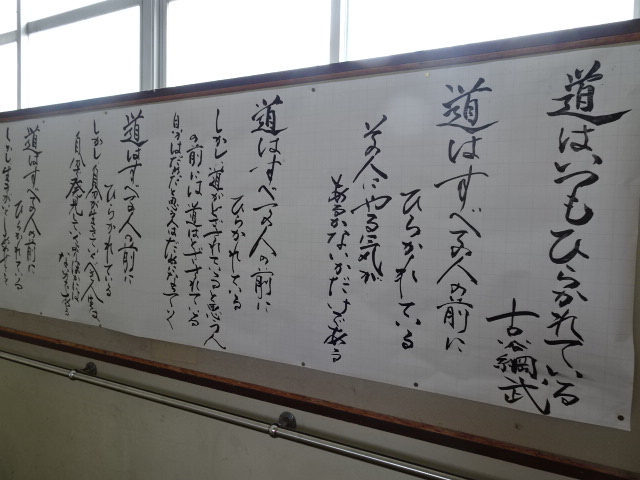 道はいつもひらかれている
古谷綱武
道はすべての人の前に
ひらかれている
その人にやる気が
あるかないかだけである
道はすべての人の前に
ひらかれている
しかし道がとざされていると思う人
の前には道はとざされている
自分はだめだと思えばだめになっていく
道はすべての人の前に
ひらかれている
しかし自分が生きていく人生を
自分で発見していかなければ
道はすべての人の前に
ひらかれている